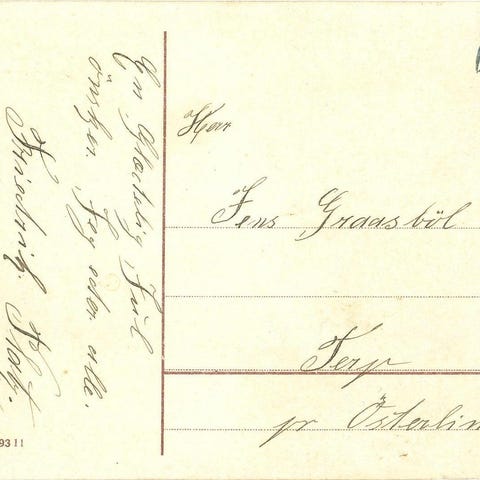 En Glædelig Jul
önsker Jeg eder alle.
Friedrich
Herr
Jens Graasböl
Terp
pr Österlin
93 11